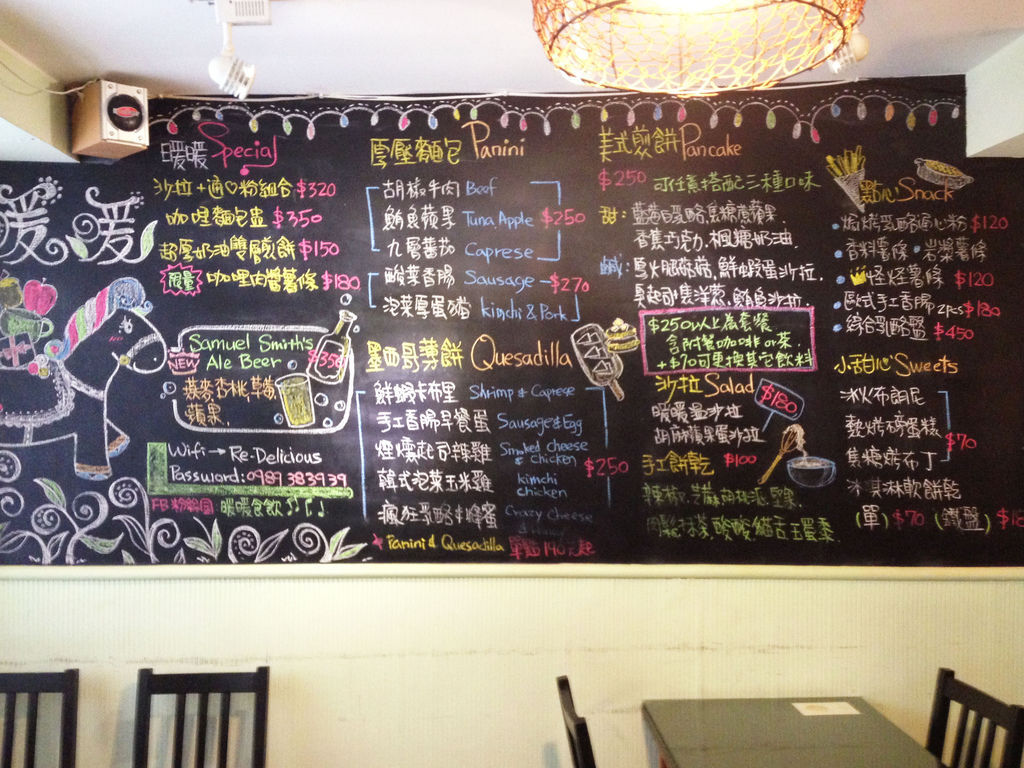 暖暖
暖暖 Special
沙拉+通♡粉組合 $320
咖哩麵包盅 $350
超厚奶油雙層煎餅 $150
限量 咖哩肉醬薯條 $180
NEW
Samuel Smith's
Ale Beer
$350
燕麥.杏桃.草莓.
蘋果.
Wifi → Re-Delicious
Password: 0989 383939
FB 粉絲團: 暖暖食飲
厚壓麵包 Panini
胡椒牛肉 Beef
鮪魚蘋果 Tuna, Apple $250
九層蕃茄 Caprese
酸菜香腸 Sausage $270
泡菜厚蛋豬 kimchi & Pork
墨西哥薄餅 Quesadilla
鮮蝦卡布里 Shrimp & Caprese
手工香腸早餐蛋 Sausage & Egg
煙燻起司辣雞 Smoked cheese & Chicken $250
韓式泡菜玉米雞 kimchi chicken
瘋狂乳酪蜂蜜 Crazy Cheese
Panini & Quesadilla 單點 140元起
美式煎餅 Pancake
$250 可任意搭配三種口味
甜: 藍莓白乳酪.焦糖蘋果.
香蕉巧克力.楓糖奶油.
鹹: 鮮蝦蛋沙拉.
洋蔥.鮪魚沙拉.
$250以上為套餐
含附餐咖啡 or 茶
+$70可更換其它飲料
沙拉 Salad $180
暖暖沙拉
胡麻蘋果蛋沙拉
手工餅乾 $100
點心 Snack
$120
香料薯條・岩漿薯條
怪怪薯條 $120
歐式手工香腸 2pcs $180
綜合乳酪盤 $450
小甜心 Sweets
冰火布朗尼
$70
焦糖烤布丁
冰淇淋軟餅乾
(單) $70 (鐵盤) $18